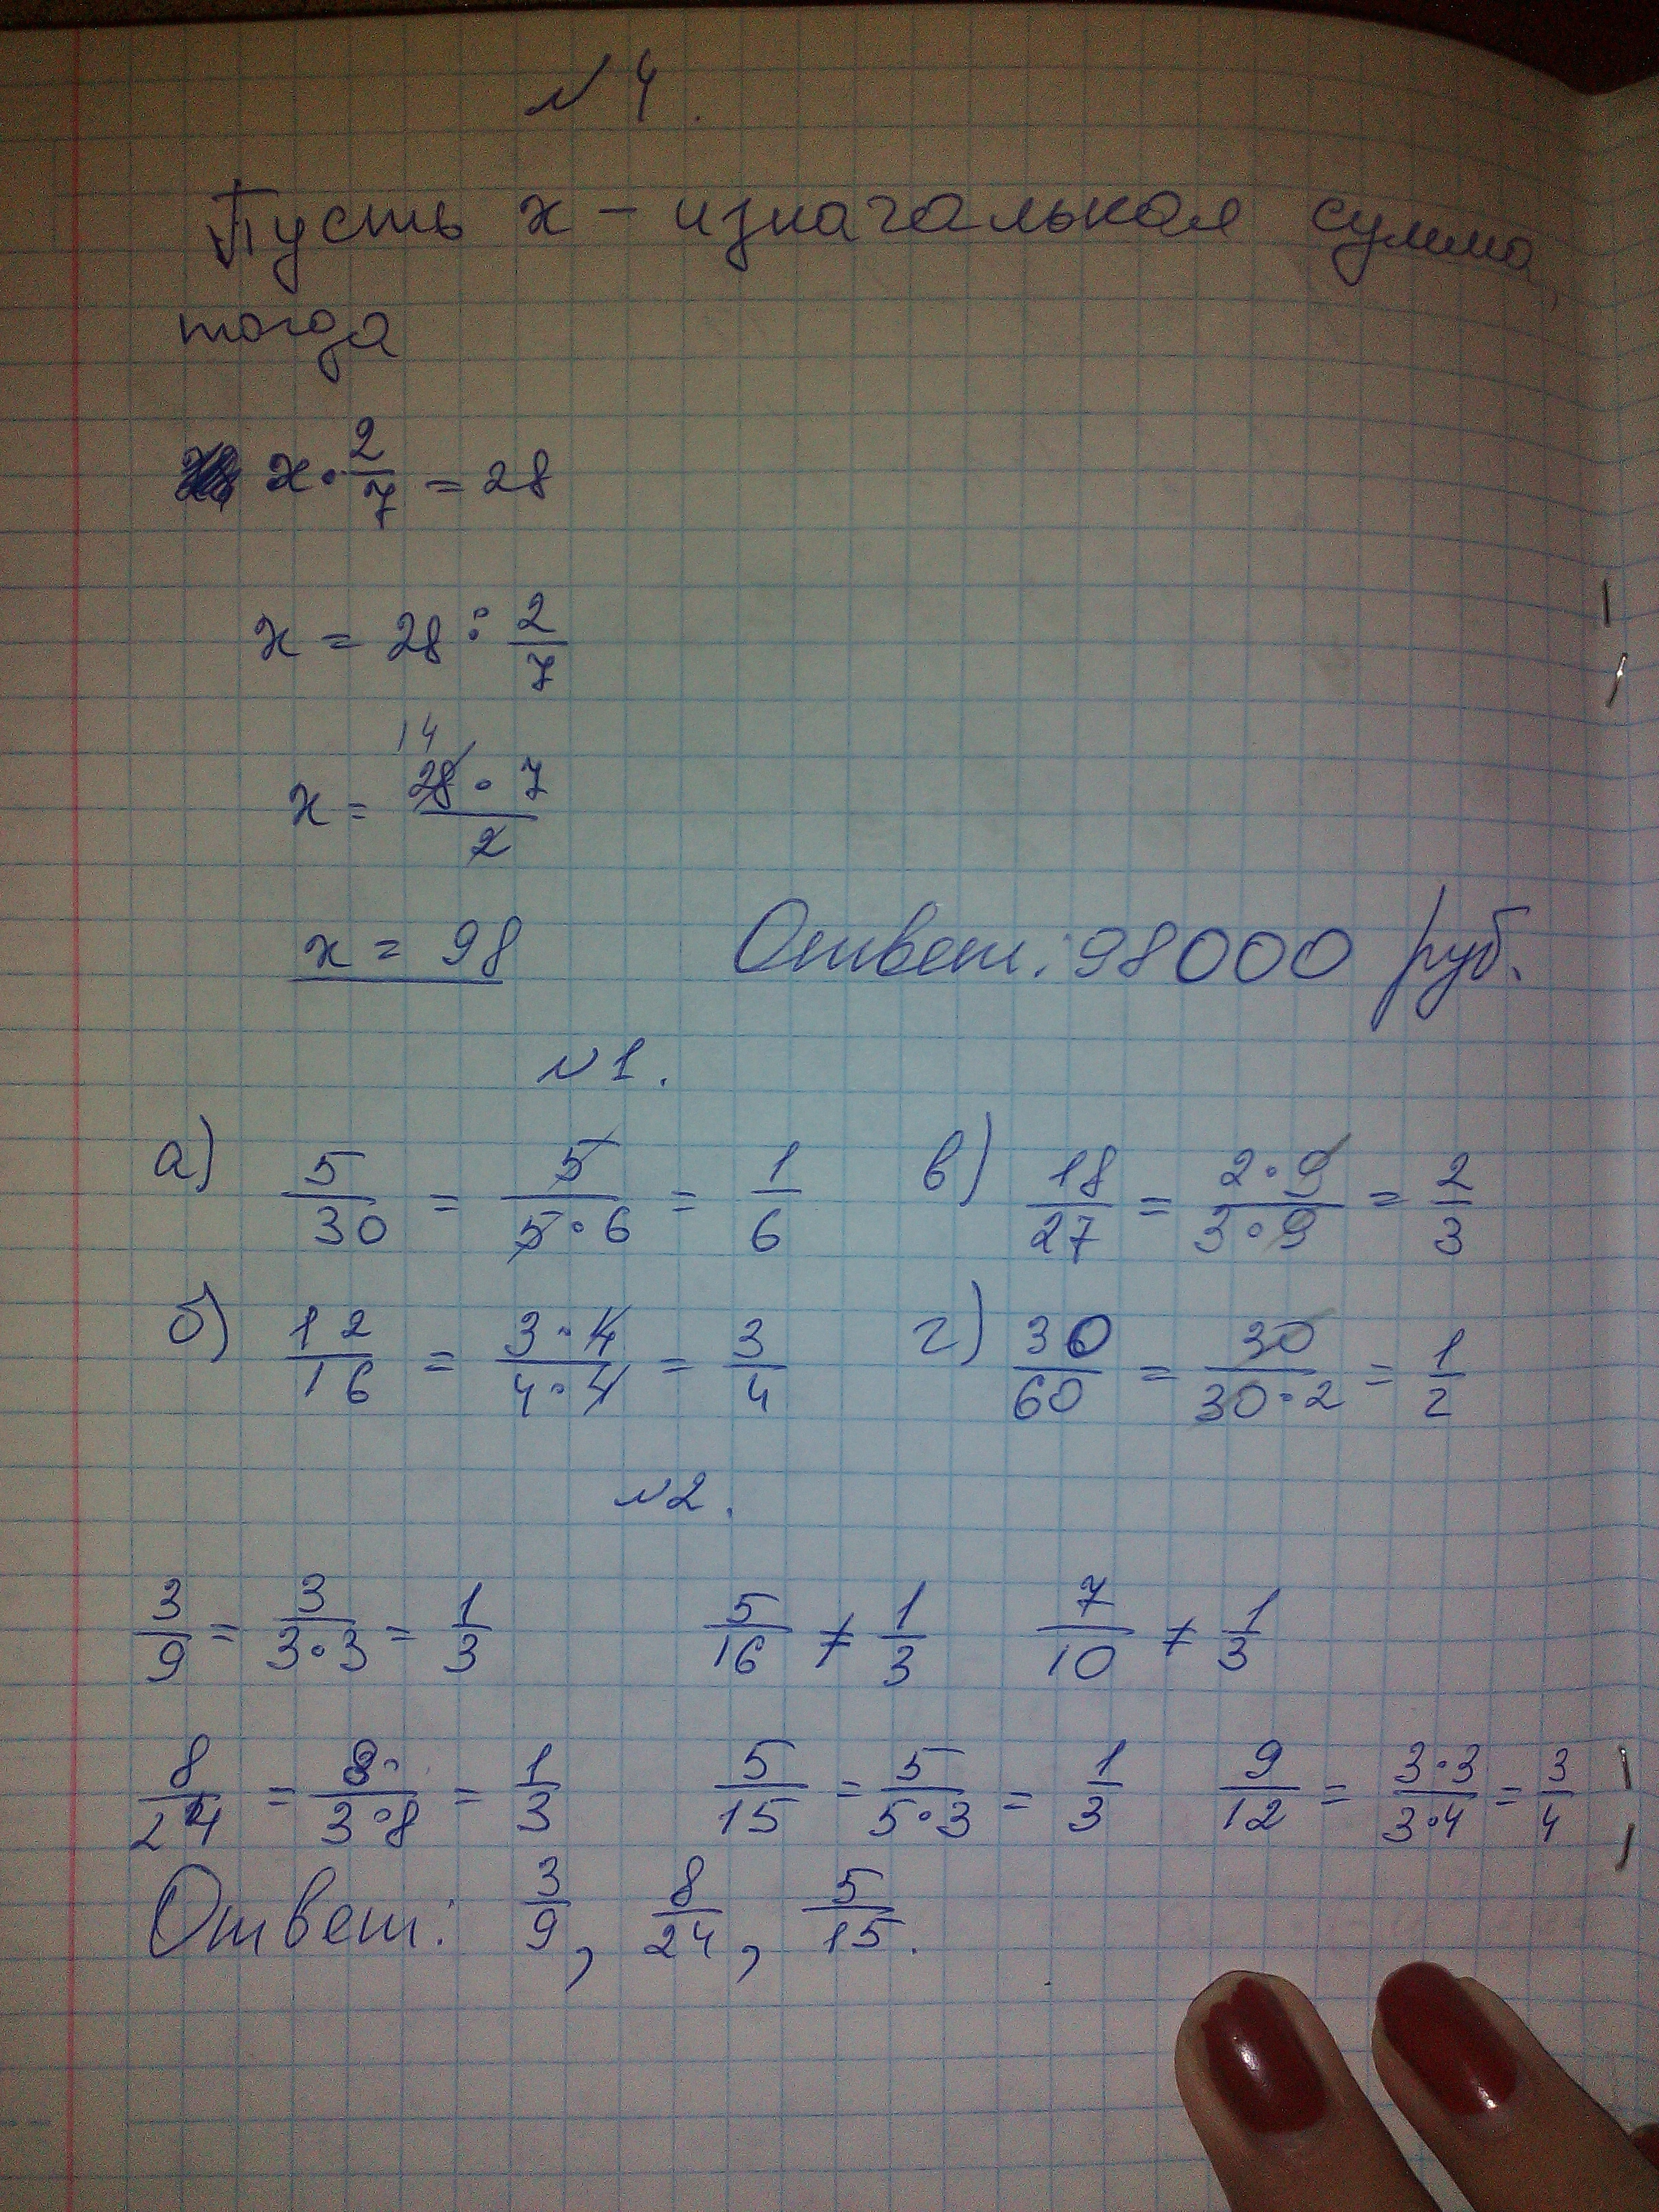 №4.
Пусть x – изначальная сумма,
тогда
x · 2/7 = 28
x = 28 : 2/7
14
x = 28 · 7 / 2
x = 98 Ответ: 98000 руб.
№1.
а) 5/30 = 5/5·6 = 1/6 в) 18/27 = 2·9/3·9 = 2/3
б) 12/16 = 3·4/4·4 = 3/4 г) 30/60 = 30/30·2 = 1/2
№2.
3/9 = 3/3·3 = 1/3 5/16 ≠ 1/3 7/10 ≠ 1/3
8/24 = 8/3·8 = 1/3 5/15 = 5/5·3 = 1/3 9/12 = 3·3/3·4 = 3/4
Ответ: 3/9, 8/24, 5/15.